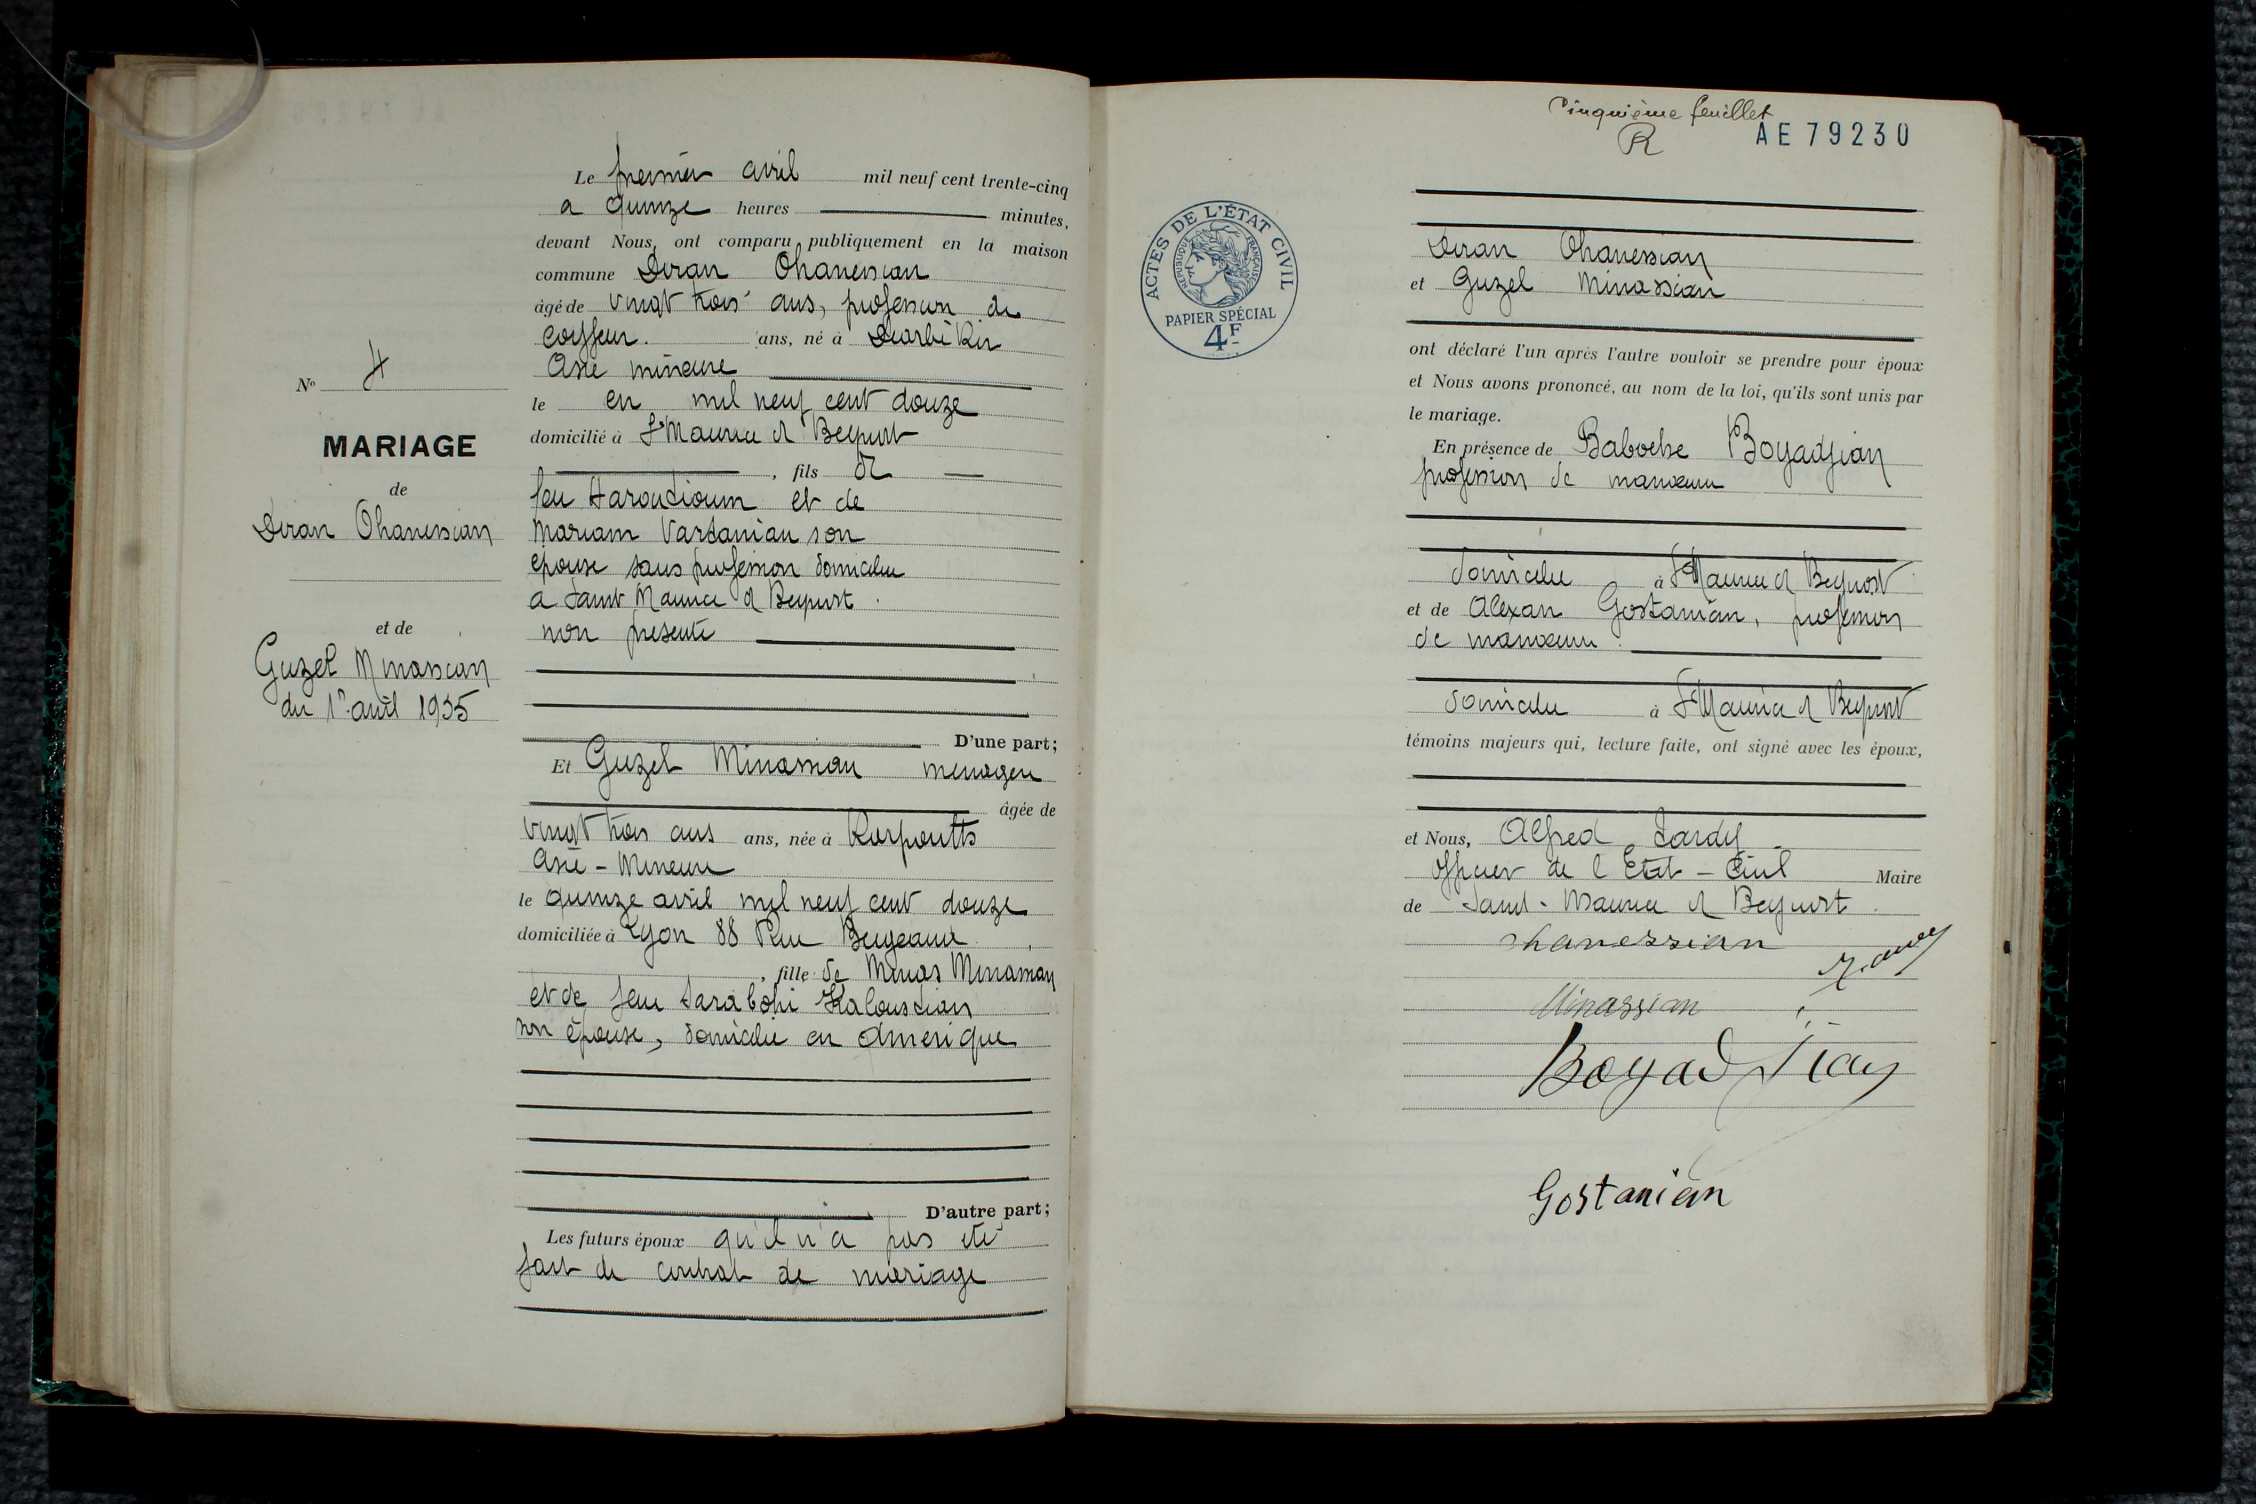 Nº 4
MARIAGE
de
Diran Ohanessian
et de
Guzel Minassian
du 1er avril 1935
Le premier avril mil neuf cent trente-cinq
a quinze heures minutes,
devant Nous, ont comparu publiquement en la maison
commune Diran Ohanessian
âgé de vingt trois ans, profession de
coiffeur. ans, né à Diarbékir
Asie mineure
le en mil neuf cent douze
domicilié à St Maurice d Beynost
, fils de
feu Haroutioum et de
Mariam Vartanian son
épouse sans profession domiciliée
a Saint Maurice d Beynost.
non présente
D'une part;
Et Guzel Minassian menagere
âgée de
vingt trois ans ans, née à Karpoutts
Asie - Mineure
le quinze avril mil neuf cent douze
domiciliée à Lyon 88 Rue Bugeaud
, fille de Minas Minassian
et de feue Sarabohi Kaloustian
son épouse, domicilié en Amerique
D'autre part;
Les futurs époux qu'il n'a pas été
fait de contrat de mariage
Cinquième feuillet
R AE 79230
ACTES DE L'ÉTAT CIVIL
RÉPUBLIQUE FRANÇAISE
PAPIER SPÉCIAL
4F
Diran Ohanessian
et Guzel Minassian
ont déclaré l'un après l'autre vouloir se prendre pour époux
et Nous avons prononcé, au nom de la loi, qu'ils sont unis par
le mariage.
En présence de Baboche Boyadjian
profession de manœuvre
domicilié à St Maurice d Beynost
et de Alexan Gostanian, profession
de manœuvre.
domicilié à St Maurice d Beynost
témoins majeurs qui, lecture faite, ont signé avec les époux,
et Nous, Alfred Tardy
officier de l Etat - Civil Maire
de Saint - Maurice d Beynost.
ohanessian
Minassian
Boyadjian
Gostanian